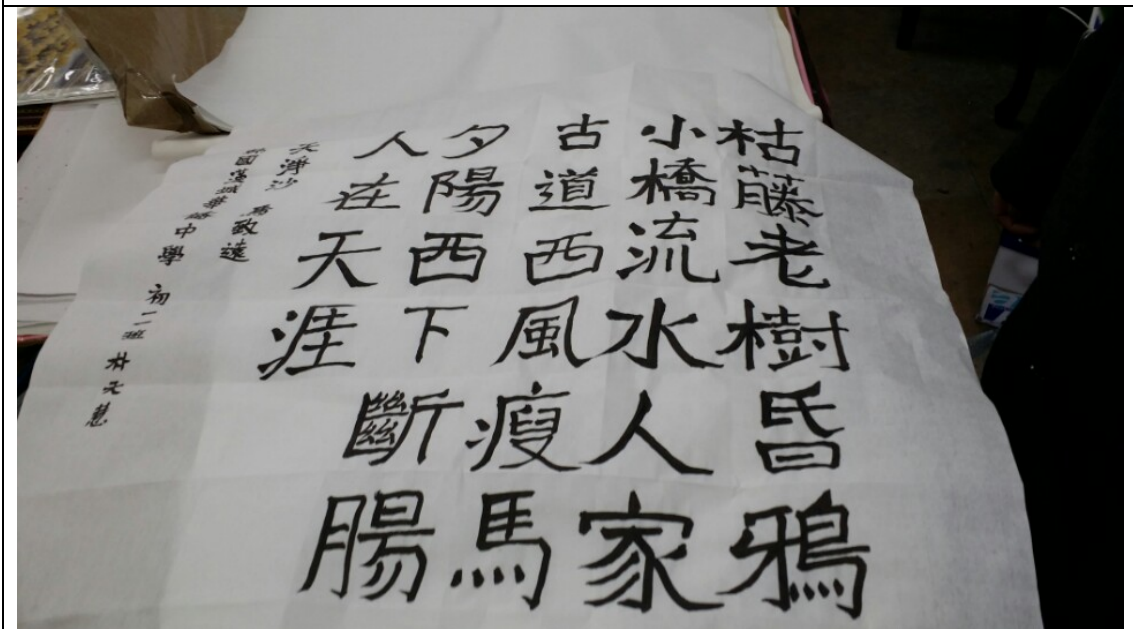 枯藤老樹昏鴉
小橋流水人家
古道西風瘦馬
夕陽西下斷腸
人在天涯
天淨沙 馬致遠
韓國漢城華僑中學 初二班 林天慧